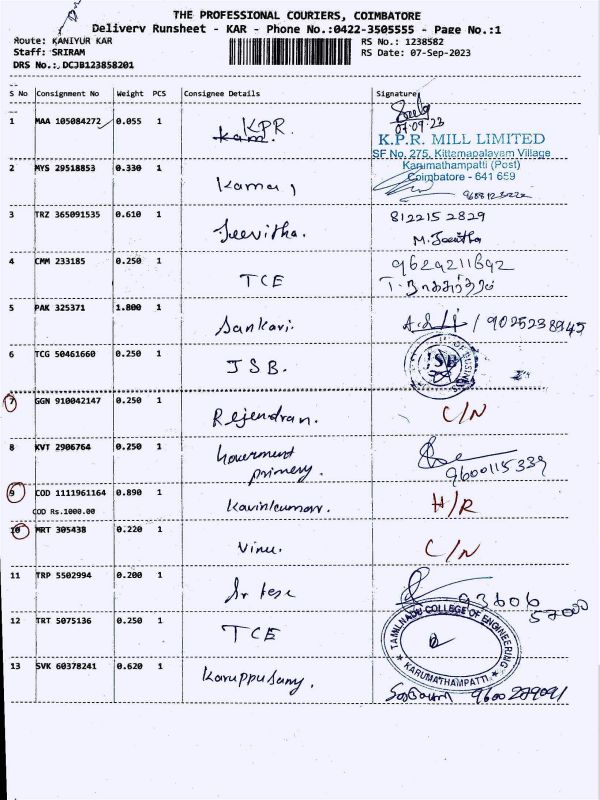 THE PROFESSIONAL COURIERS, COIMBATORE
Delivery Runsheet - KAR - Phone No.:0422-3505555 - Page No.:1
Route: KANIYUR KAR RS No.: 1238582
Staff: SRIRAM RS Date: 07-Sep-2023
DRS No.: DCJB123858201
S No Consignment No Weight PCS Consignee Details Signature
1 MAA 105084272 0.055 1 KPR.
07.09.23
K.P.R. MILL LIMITED
SF No. 275, Kittampalayam Village
Karumathampatti (Post)
Coimbatore - 641 659
2 MYS 29518853 0.330 1 Kamar
3 TRZ 365091535 0.610 1 Jeevitha. 812215 2829
M. Jeevitha
4 CMM 233185 0.250 1 TCE 9629211692
5 PAK 325371 1.800 1 Sankari. / 9025238945
6 TCG 50461660 0.250 1 JSB. JSB
7 GGN 910042147 0.250 1 Rejendran. C/N
8 KVT 2906764 0.250 1 Government
primery. 9600115339
9 COD 1111961164 0.890 1 Kavinkumar. H/R
COD Rs.1000.00
10 MRT 305438 0.220 1 Vinu. C/N
11 TRP 5502994 0.200 1 93606
57000
12 TRT 5075136 0.250 1 TCE
TAMILNADU COLLEGE OF ENGINEERING
KARUMATHAMPATTI
13 SVK 60378241 0.620 1 Karuppusamy. 9600279091